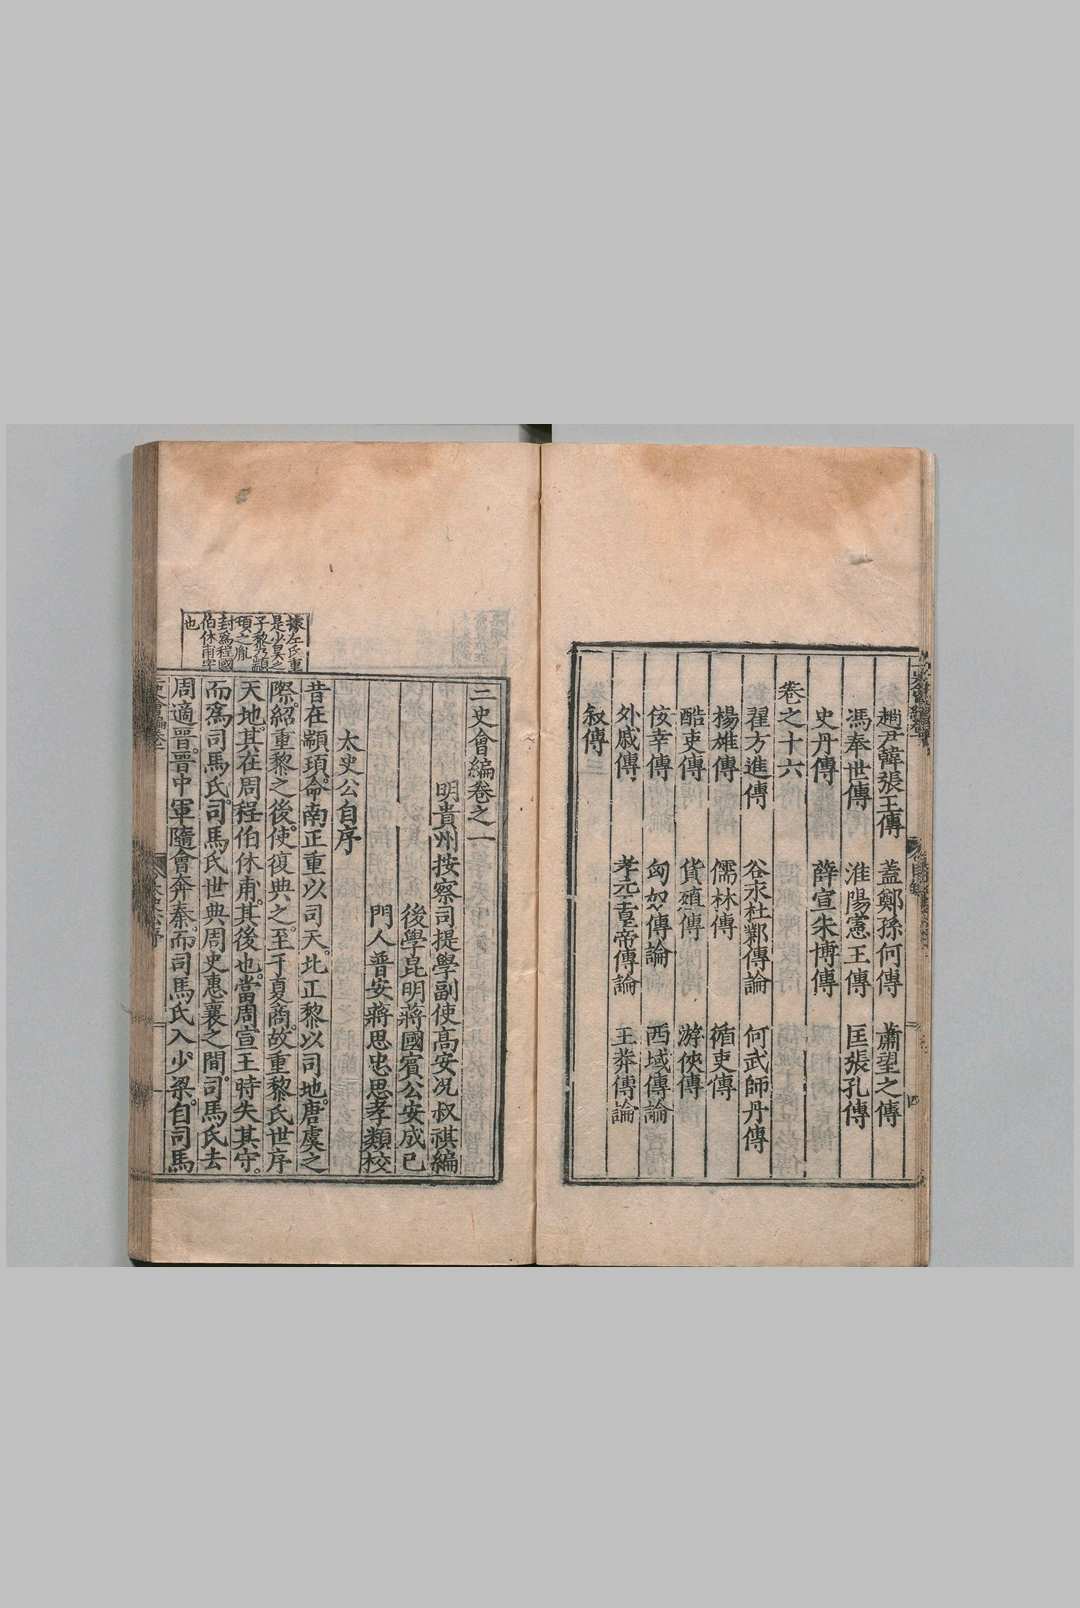 趙尹韓張王傳 蓋鄭孫何傳 蕭望之傳
馮奉世傳 淮陽憲王傳 匡張孔傳
史丹傳 薛宣朱博傳
卷之十六
翟方進傳 谷永杜鄴傳論 何武師丹傳
楊雄傳 儒林傳 循吏傳
酷吏傳 貨殖傳 游俠傳
佞幸傳 匈奴傳論 西域傳論
外戚傳 孝元皇帝傳論 王莽傳論
叙傳
二史會編卷之一
明貴州按察司提學副使高安况叔祺編
後學昆明蔣國賓公安成已
門人普安蔣思忠思孝類校
太史公自序
昔在顓頊命南正重以司天北正黎以司地唐虞之
際紹重黎之後使復典之至于夏商故重黎氏世序
天地其在周程伯休甫其後也當周宣王時失其守
而爲司馬氏司馬氏世典周史惠襄之間司馬氏去
周適晋晋中軍隨會奔秦而司馬氏入少梁自司馬
據左氏重
是少昊之
子黎乃顓
頊之胤
封爲程國
伯休甫字
也